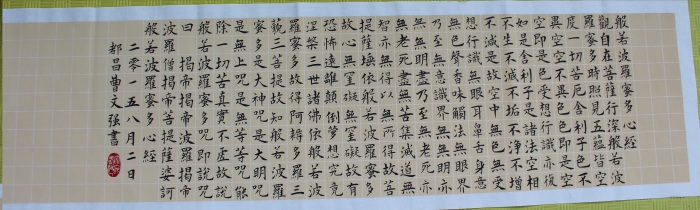 般若波羅蜜多心經
觀自在菩薩行深般若波
羅蜜多時照見五蘊皆空
度一切苦厄舍利子色不
異空空不異色色即是空
空即是色受想行識亦復
如是舍利子是諸法空相
不生不滅不垢不淨不增
不減是故空中無色無受
想行識無眼耳鼻舌身意
無色聲香味觸法無眼界
乃至無意識界無無明亦
無無明盡乃至無老死亦
無老死盡無苦集滅道無
智亦無得以無所得故菩
提薩埵依般若波羅蜜多
故心無罣礙無罣礙故有
恐怖遠離顛倒夢想究竟
涅槃三世諸佛依般若波
羅蜜多故得阿耨多羅三
藐三菩提故知般若波羅
蜜多是大神咒是大明咒
是無上咒是無等等咒能
除一切苦真實不虛故說
般若波羅蜜多咒即說咒
曰 揭帝揭帝波羅揭帝
波羅僧揭帝菩提薩婆訶
般若波羅蜜多心經
二零一五八月二日
都昌曹文强書